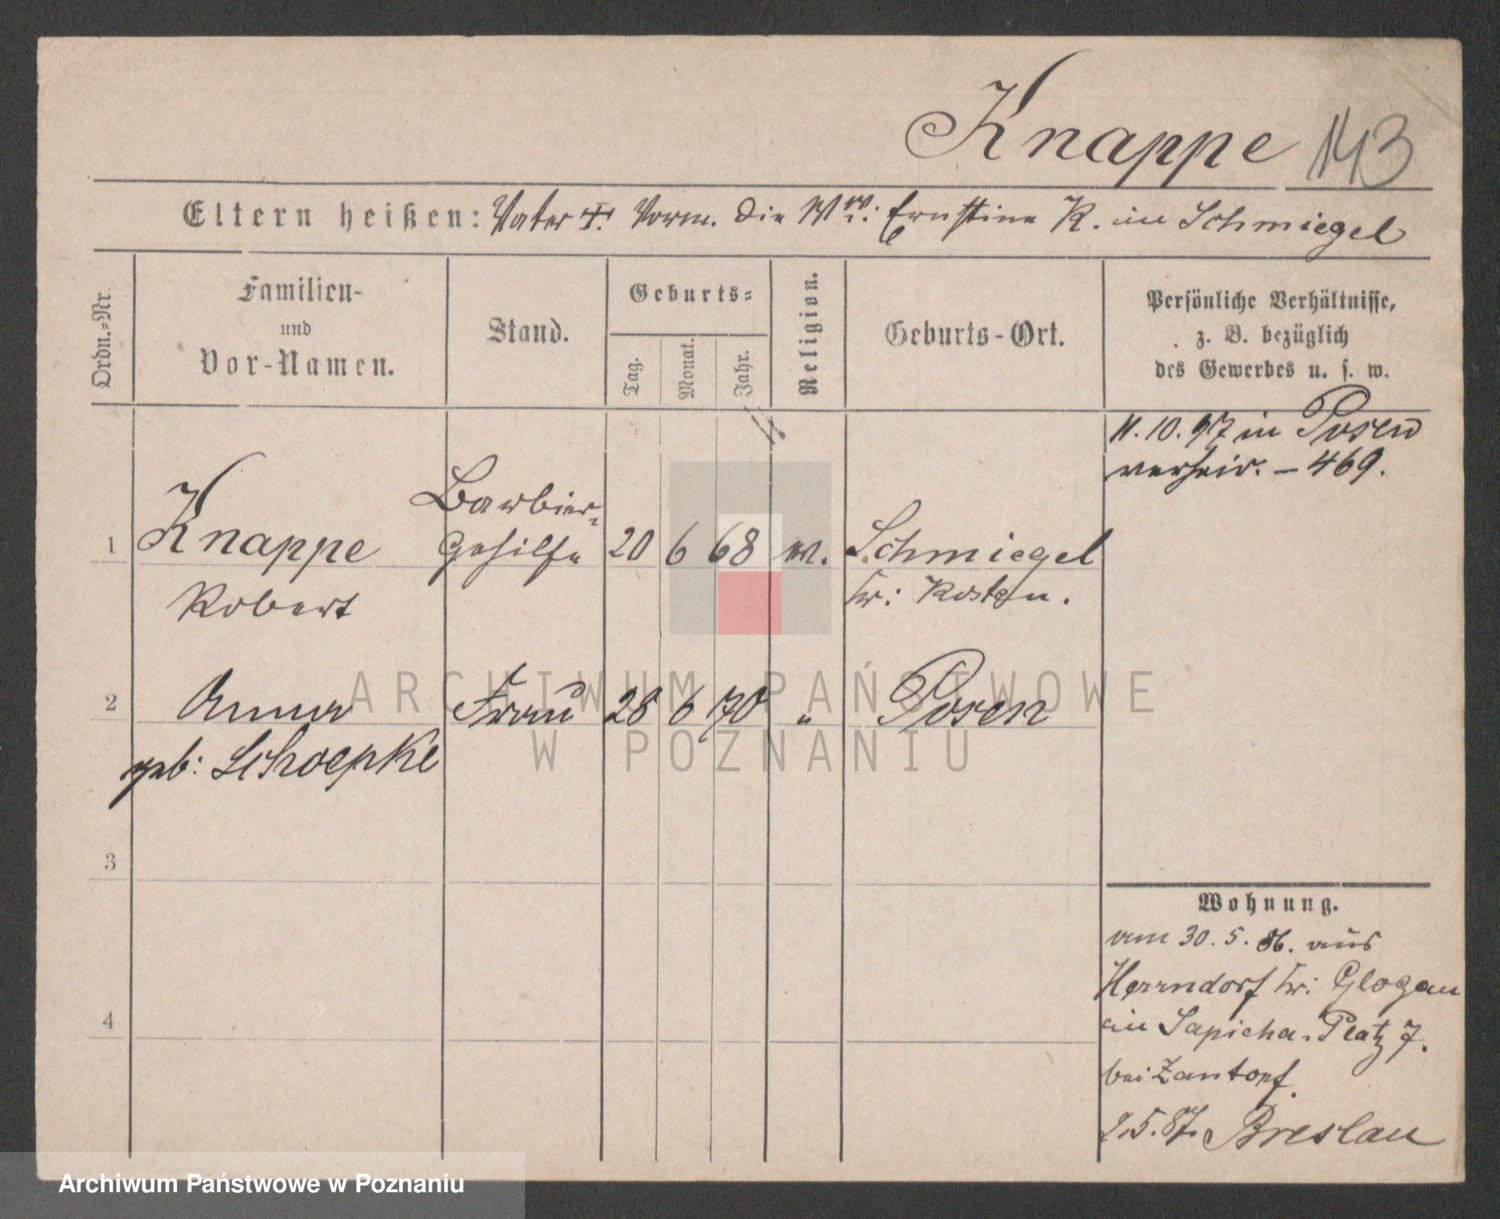 Knappe 143
Eltern heißen: Vater †. Vorm. die Ww: Ernstine K. in Schmiegel
Ordn.-Nr.
Familien-
und
Vor-Namen.
Stand.
Geburts-
Tag.
Monat.
Jahr.
Religion.
Geburts-Ort.
Persönliche Verhältnisse,
z. B. bezüglich
des Gewerbes u. s. w.
11. 10. 97 in Posen
verheir. – 469.
1 Knappe Barbier- 20 6 68 Schmiegel
Robert Gehilfe Kr: Kosten.
ARCHIWUM PAŃSTWOWE
W POZNANIU
2 Anna Frau 28 6 70 " Posen
geb: Schoepke
3
4
Wohnung.
am 30. 5. 86. aus
Herrndorf Kr: Glogau
in Sapieha-Platz 7.
bei Zantopf.
2.5.87. Breslau
Archiwum Państwowe w Poznaniu